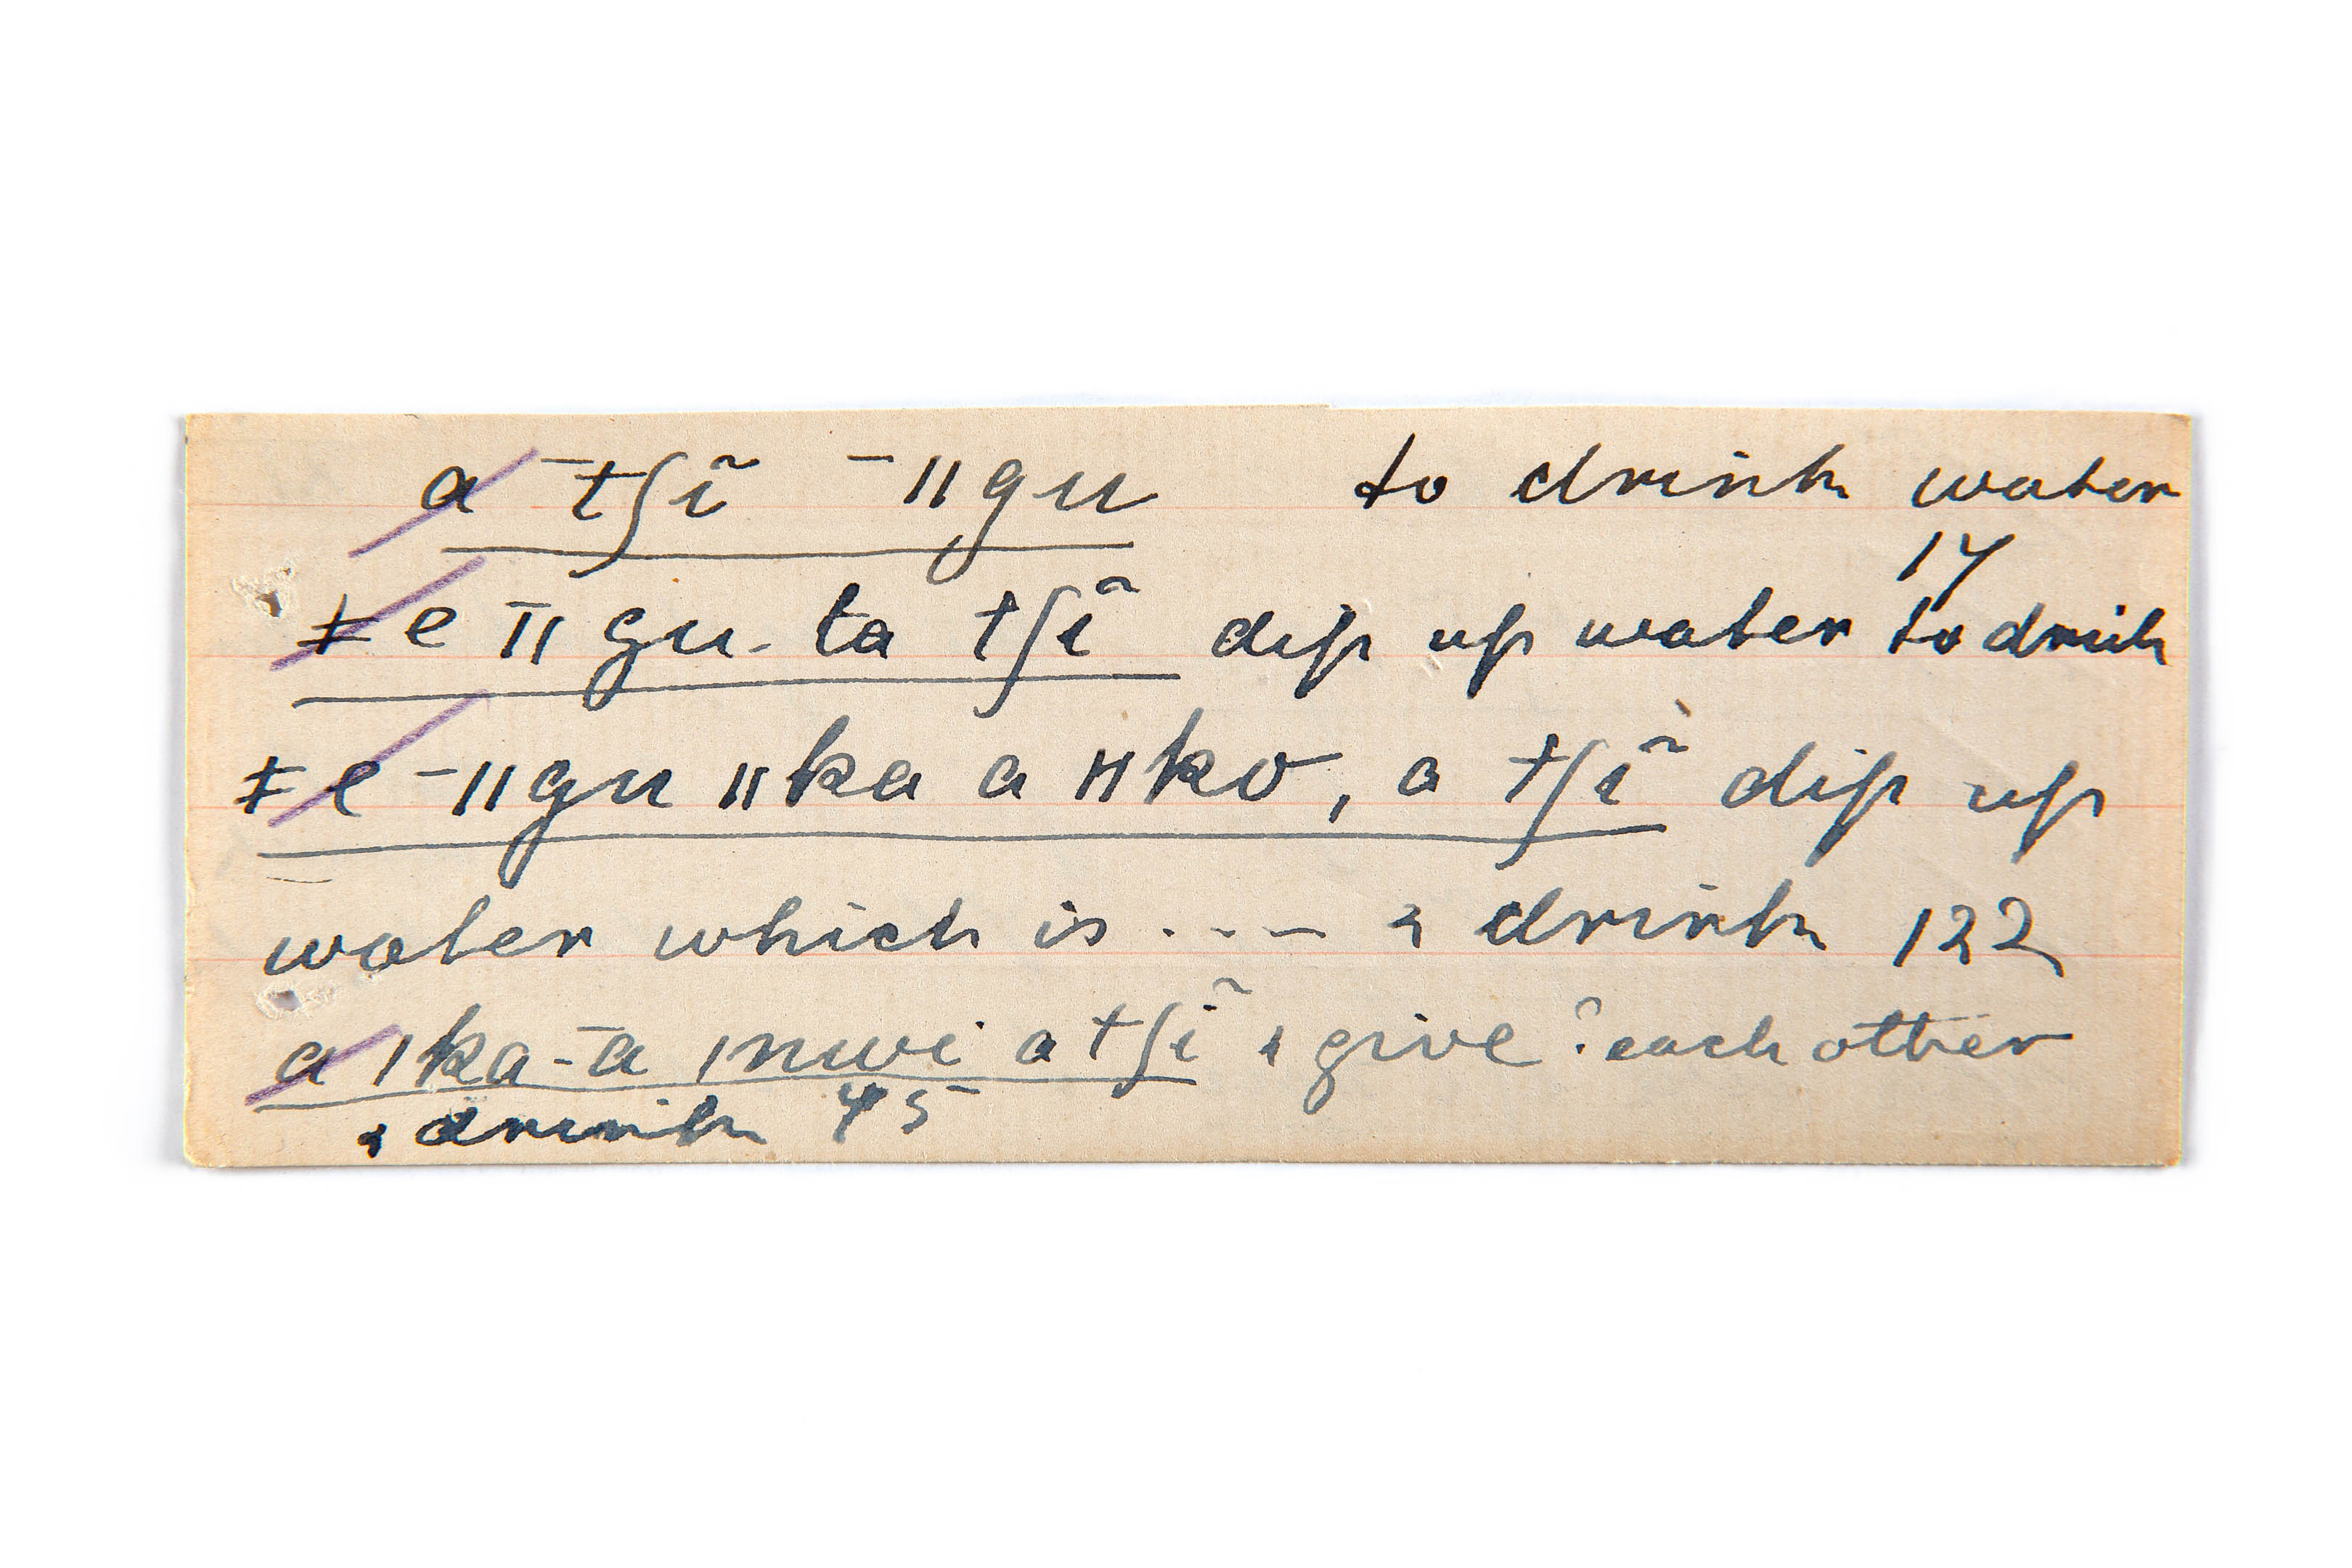 a ¯tʃĩ ¯ǁgu to drink water
17
ǂe ¯ǁgu-ta tʃĩ dip up water to drink
ǂe ¯ǁgu ǁka a ǁko, a tʃĩ dip up
water which is .--- & drink 122
a ǀka-ā ǀnwi a tʃĩ & give ? each other
& drink 45